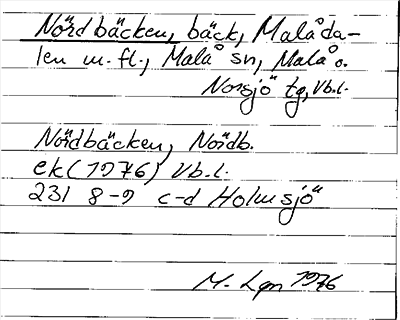 Nördbäcken, bäck, Malåda-
len m.fl., Malå sn, Malå o.
Norsjö tg, Vb.l.
Nördbäcken, Nördb.
ek (1976) Vb.l.
231 8-9 c-d Holmsjö
M. Lgn 1976